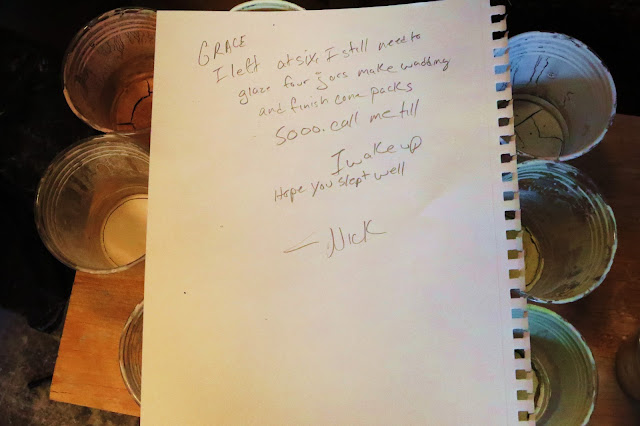 GRACE
I left at six. I still need to
glaze four jars make wadding
and finish cone packs
Sooo. call me till
I wake up
Hope you slept well
— Nick